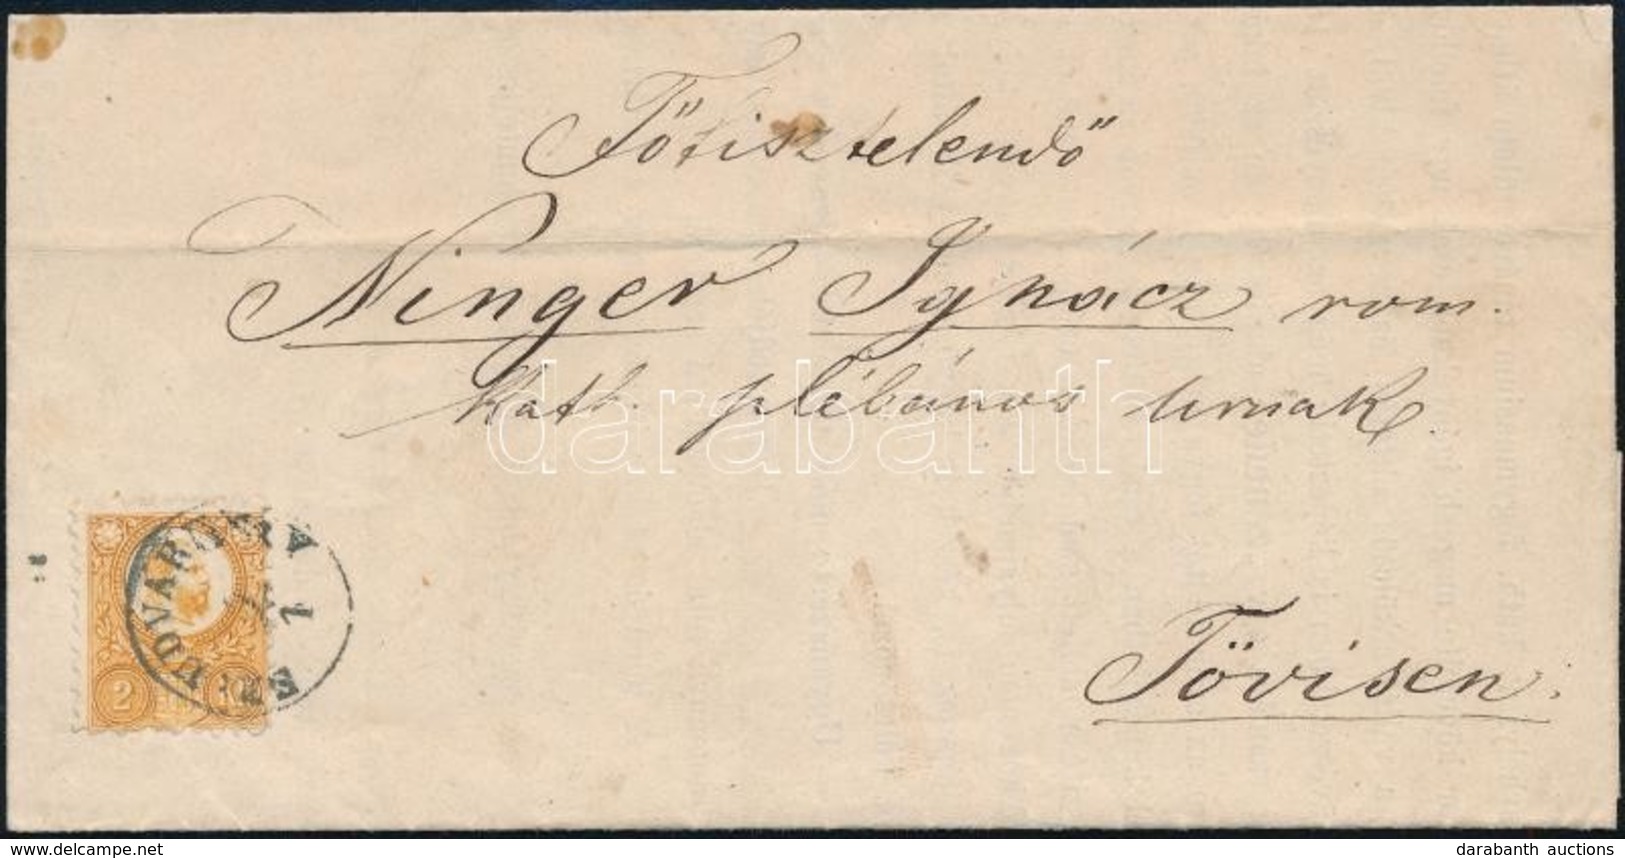 Főtisztelendő
Ninger Ignácz rom.
Kath. plébános urnak
Tövisen.
darabanth
UDVARHELY
2
www.delcampe.net
darabanth auctions